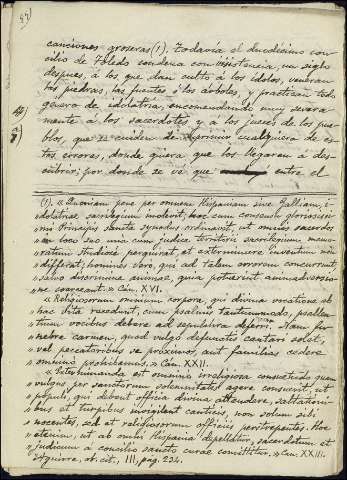 canciones groseras (1). Todavía el duodécimo con-
cilio de Toledo condena con insistencia, un siglo
despues, á los que dan culto á los ídolos, veneran
las piedras, las fuentes ó los árboles, y practican todo
genero de idolatría, encomendando muy severa
mente á los sacerdotes y á los jueces de los pue-
blos, que cuiden de reprimir cualquiera de es-
tos errores, donde quiera que los llegaren á des-
cubrir; por donde se vé que entre el
(1). «Quoniam pene per omnem Hispaniam sive Galliam, i-
dolatriae sacrilegium inolevit, hoc cum consensu gloriosissi-
mi Principis sancta synodus ordinavit, ut omnis sacerdos
in loco suo una cum judice territorii sacrilegium memo-
ratum studiose perquirat, et exterminare inventum non
differat; homines vero, qui ad talem errorem concurrunt
salvo discrimine animae, qua potuerint animadversio-
ne coerceant.» Cán. XVI.
«Religiosorum omnium corpora, qui divina vocatione ab
hac vita recedunt, cum psalmis tantummodo, psallen-
tium vocibus debere ad sepulchra deferri. Nam fu-
nebre carmen, quod vulgo defunctis cantari solet,
vel pectoribus se proximos, aut familias cedere
omnino prohibemus.» Cán. XXII.
«Exterminanda est omnino irreligiosa consuetudo quam
vulgus, per sanctorum solemnitates agere consuevit, ut
populi, qui debent officia divina attendere, saltationi-
bus et turpibus invigilent canticis, non solum sibi
nocentes, sed et religiosorum officiis perstrepentes. Hoc
etenim, ut ab omni Hispania depellatur, sacerdotum et
judicum á concilio sancto curae committitur.» Cán. XXIII.
Aguirre, ob. cit., III, pág. 234.